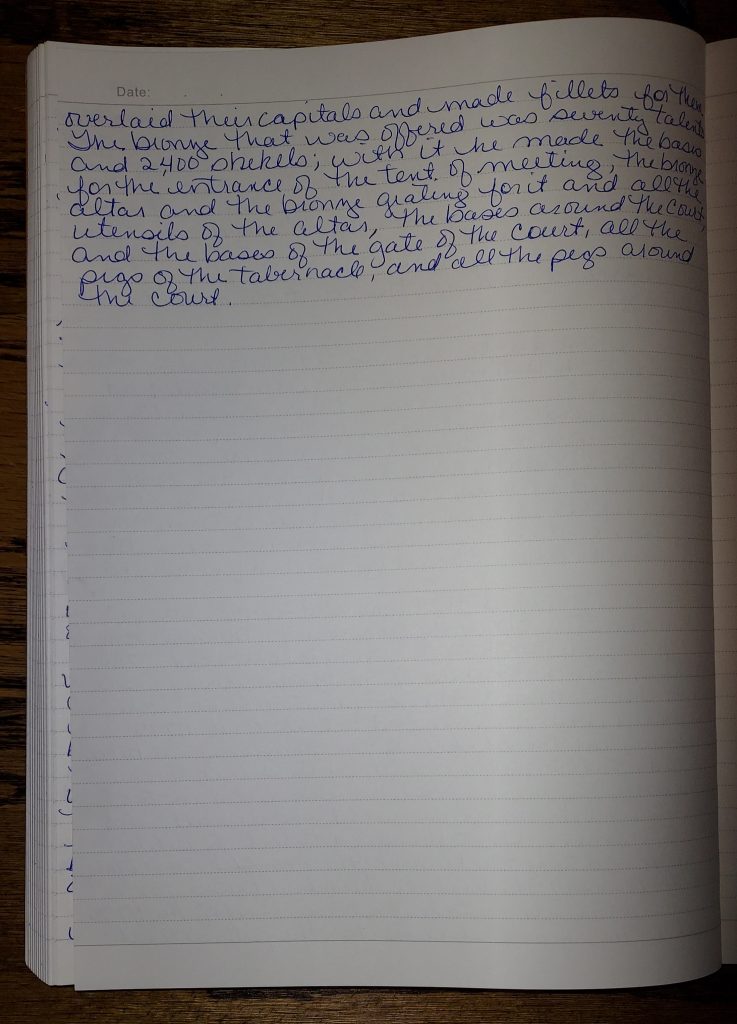 Date:
overlaid their capitals and made fillets for them
The bronze that was offered was seventy talents
and 2,400 shekels; with it he made the bases
for the entrance of the tent of meeting, the bronze
altar and the bronze grating for it and all the
utensils of the altar, the bases around the court,
and the bases of the gate of the court, all the
pegs of the tabernacle, and all the pegs around
the court.